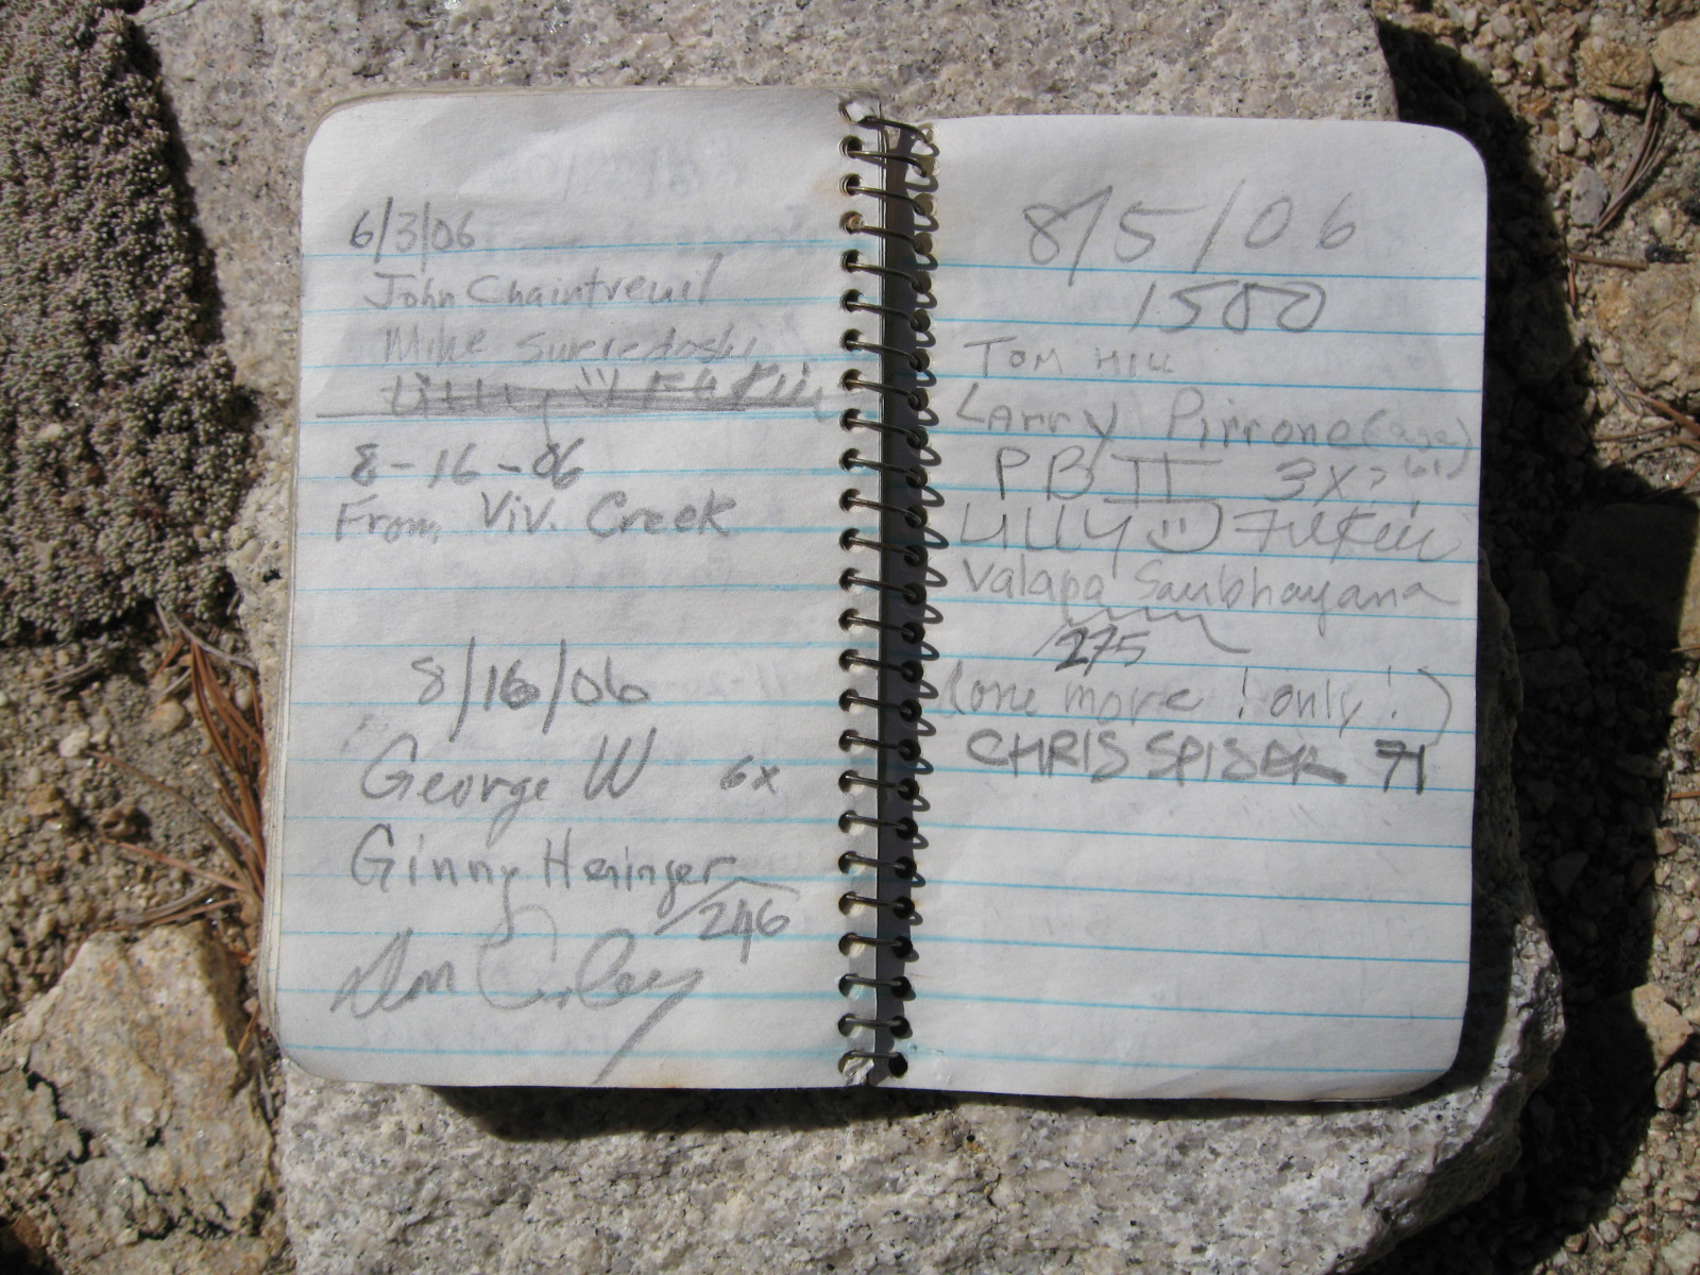 6/3/06
John Chaintreuil
Mike
8-16-06
From Viv. Creek
8/16/06
George W 6x
Ginny Heninger
246
8/5/06
1500
TOM HILL
LArry Pirrone (age
PB II 3X? 61)
LILLY Fulkein
Valapa Saubhayana
275
(one more! only!)
CHRIS SPISER 71